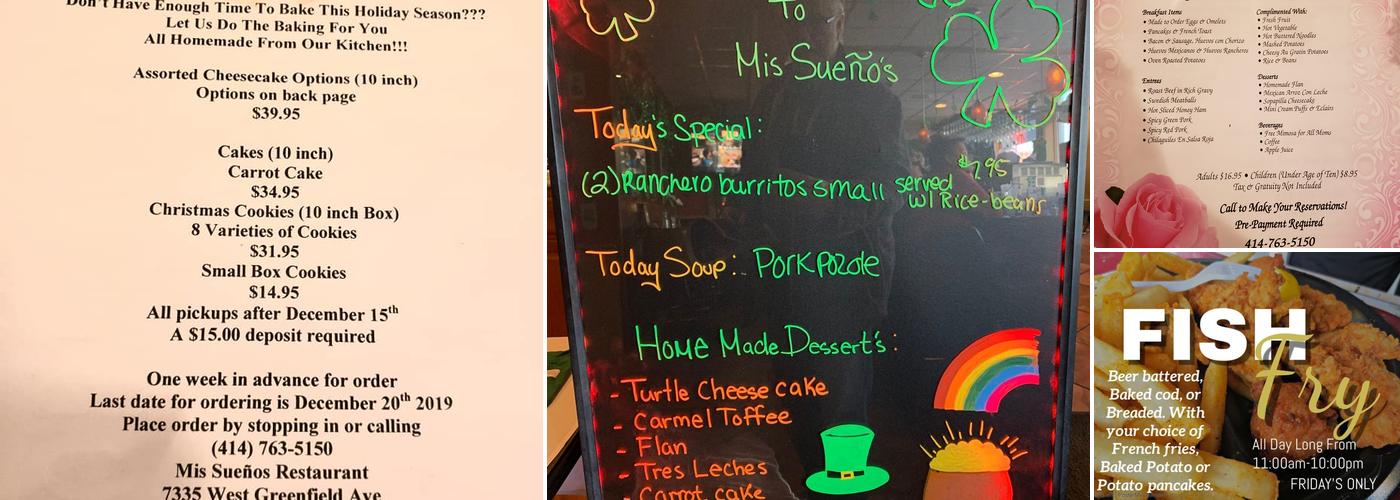 Don't Have Enough Time To Bake This Holiday Season???
Let Us Do The Baking For You
All Homemade From Our Kitchen!!!
Assorted Cheesecake Options (10 inch)
Options on back page
$39.95
Cakes (10 inch)
Carrot Cake
$34.95
Christmas Cookies (10 inch Box)
8 Varieties of Cookies
$31.95
Small Box Cookies
$14.95
All pickups after December 15th
A $15.00 deposit required
One week in advance for order
Last date for ordering is December 20th 2019
Place order by stopping in or calling
(414) 763-5150
Mis Sueños Restaurant
7335 West Greenfield Ave
To
Mis Sueño's
Today's Special:
(2) Ranchero burritos small served
w/ Rice-beans
Today Soup: Pork Pozole
Home Made Dessert's:
- Turtle Cheese cake
- Carmel Toffee
- Flan
- Tres Leches
- Carrot cake
Breakfast Items
• Made to Order Eggs & Omelets
• Pancakes & French Toast
• Bacon & Sausage, Huevos con Chorizo
• Huevos Mexicanos & Huevos Rancheros
• Oven Roasted Potatoes
Entrees
• Roast Beef in Rich Gravy
• Swedish Meatballs
• Hot Sliced Honey Ham
• Spicy Green Pork
• Spicy Red Pork
• Chilaquiles En Salsa Roja
Complimented With:
• Fresh Fruit
• Hot Vegetable
• Hot Buttered Noodles
• Mashed Potatoes
• Cheesy Au Gratin Potatoes
• Rice & Beans
Desserts
• Homemade Flan
• Mexican Arroz Con Leche
• Sopapilla Cheesecake
• Mini Cream Puffs & Eclairs
Beverages
• Free Mimosa for All Moms
• Coffee
• Apple Juice
Adults $16.95 • Children (Under Age of Ten) $8.95
Tax & Gratuity Not Included
Call to Make Your Reservations!
Pre-Payment Required
414-763-5150
FISH
Fry
Beer battered,
Baked cod, or
Breaded. With
your choice of
French fries,
Baked Potato or
Potato pancakes.
All Day Long From
11:00am-10:00pm
FRIDAY'S ONLY